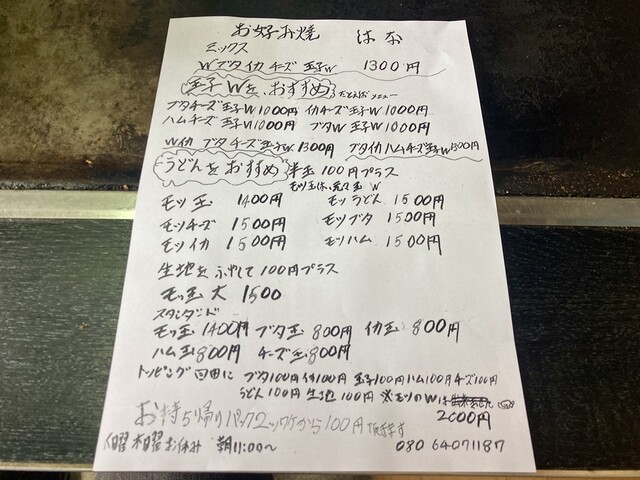 お好み焼 はな
ミックス
Wブタイカ チーズ 玉子W 1300円
玉子Wを、おすすめ たとえば メニュー
ブタチーズ玉子W1000円 イカチーズ玉子W1000円
ハムチーズ玉子W1000円 ブタW玉子W1000円
Wイカ ブタ チーズ玉子W1300円 ブタイカハムチーズ玉子W1300円
うどんをおすすめ 半玉100円プラス
モツ玉 1400円 モツうどん 1500円
モツチーズ 1500円 モツブタ 1500円
モツイカ 1500円 モツハム 1500円
生地をふやして100円プラス
モツ玉 大 1500
スタンダード
モツ玉1400円 ブタ玉800円 イカ玉800円
ハム玉800円 チーズ玉800円
トッピング ブタ100円 イカ100円 玉子100円 ハム100円 チーズ100円
うどん100円 生地100円 ※モツのWは
2000円
お持ち帰りパック2ツワケから100円頂きます
木曜お休み 朝11:00〜 080 64071187